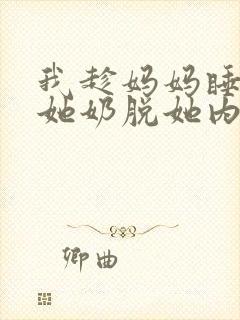 我趁妈妈睡
她奶脱她内
卿曲